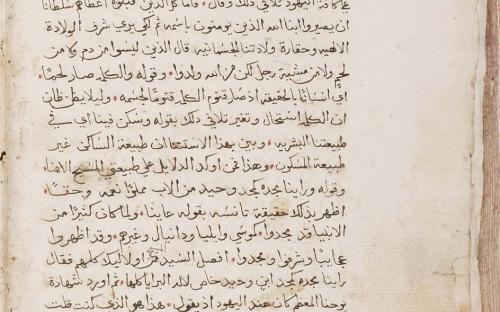 اليهود تلافي ذلك وقال • فاما كل الذين قبلوه اعطاهم سلطانا
ان يصيروا ابنا الله الذين يومنون باسمه ثم لكي يري شرف الولادة
الالهيه وحقارة ولادتنا الجسمانيه قال الذين ليسوا من دم ولا من
لحم ولا من مشية رجل لكن من الله ولدوا • وقوله والكلمه صار لحما •
اي انسانا بالحقيقة اذ صار قنوم الكلمه قنوما لجسمه • وليلا يظن ظان
ان الكلمه استحال وتغير تلافي ذلك بقوله وسكن فينا اي في
طبيعتنا البشريه • وبين بهذا الاستعلان طبيعة الساكن غير
طبيعة المسكون • وهذا من اوكد الدلايل علي طبيعتي المسيح
وقوله وراينا مجده كمجد وحيد من الاب مملوا نعمه وحقا •
اظهر بذلك حقيقة تانسه بقوله عاينا • ولما كان كثيرا من
الانبيا قد مجدوا • كموسي وايليا ودانيال وغيرهم • وقد اظهروا
عجايبا وشرفوا ومجدوا • افصل السيد من اوليك كلهم فقال
راينا مجده كمجد ابن وحيد خاص لاله البرايا كلها • ثم اورد شهادة
يوحنا المعظم كان عند اليهود اذ يقول • هذا هو الذي كنت قلت